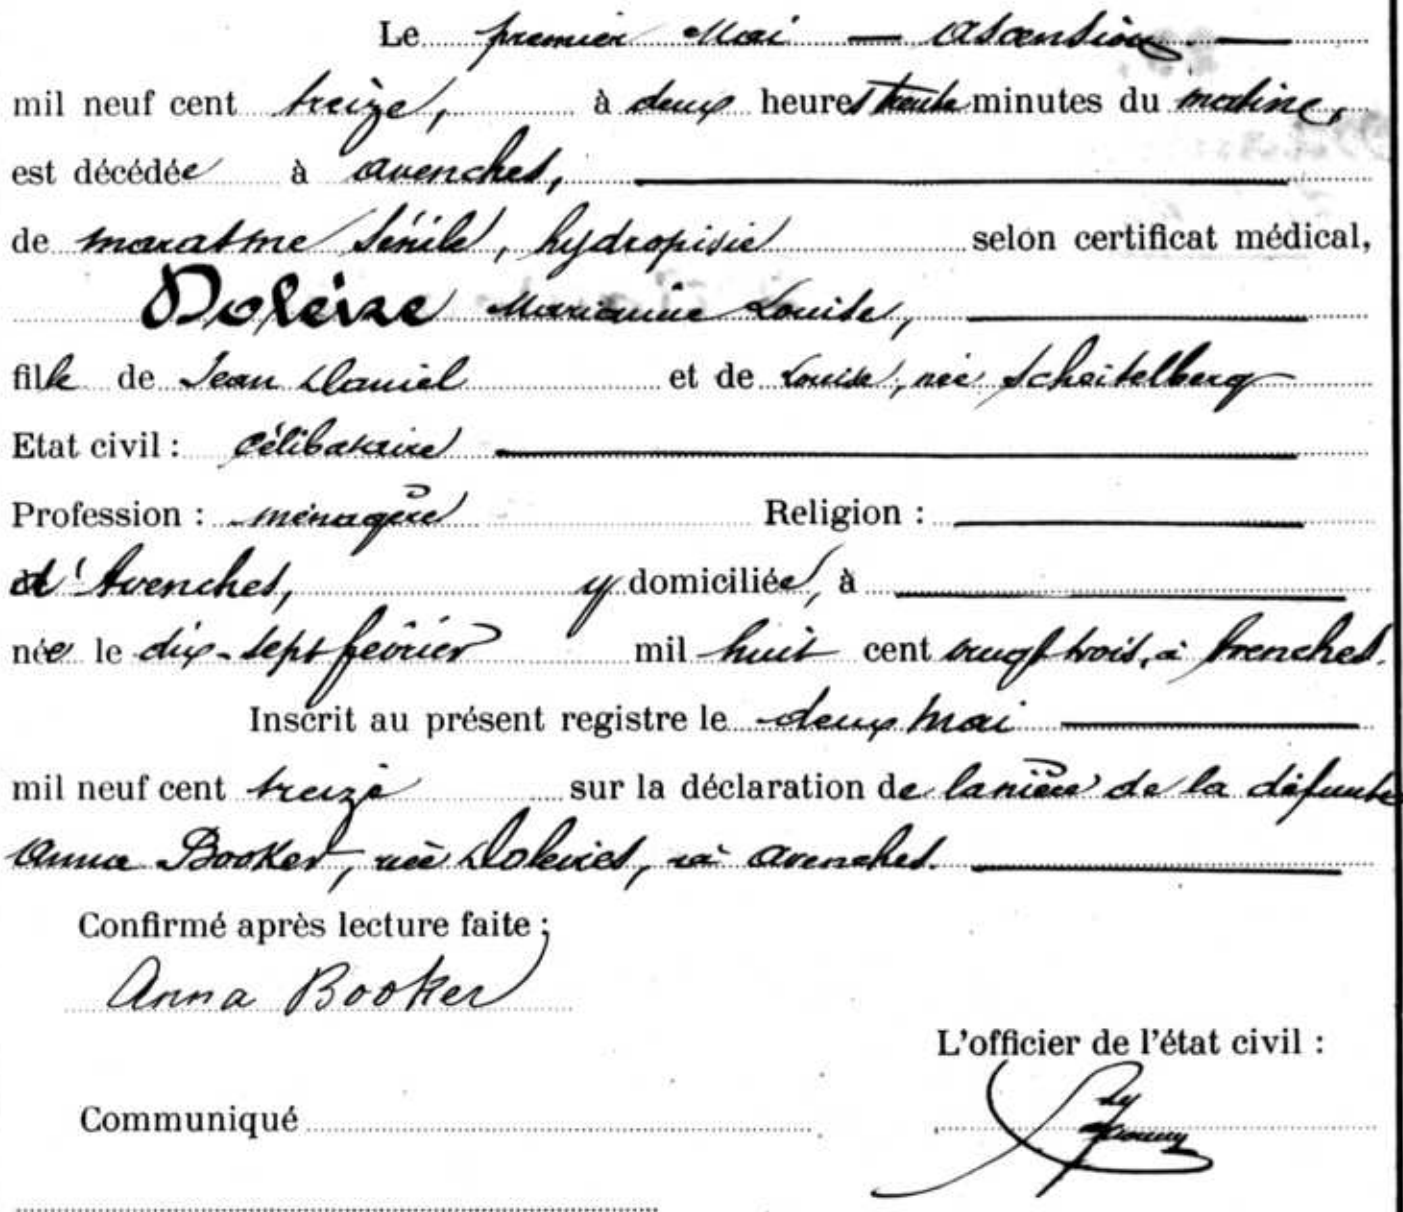 Le premier Mai — Ascension —
mil neuf cent treize, à deux heures trente minutes du matin,
est décédée à Avenches,
de marasme sénile, hydropisie selon certificat médical,
Doleires Marianne Louise,
fille de Jean Daniel et de Louise, née Scheitelberg
Etat civil : célibataire
Profession : ménagère Religion :
d'Avenches, y domiciliée, à
née le dix-sept février mil huit cent vingt trois, à Avenches.
Inscrit au présent registre le deux Mai
mil neuf cent treize sur la déclaration de la nièce de la défunte
Anna Booker, née Doleires, à Avenches.
Confirmé après lecture faite :
Anna Booker
L'officier de l'état civil :
Communiqué